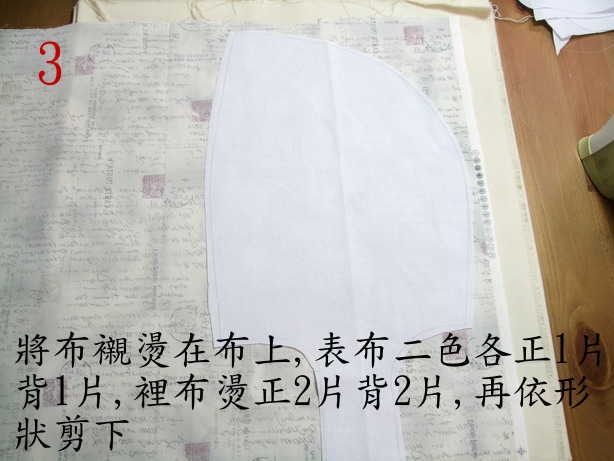 3
將布襯燙在布上,表布二色各正1片
背1片,裡布燙正2片背2片,再依形
狀剪下